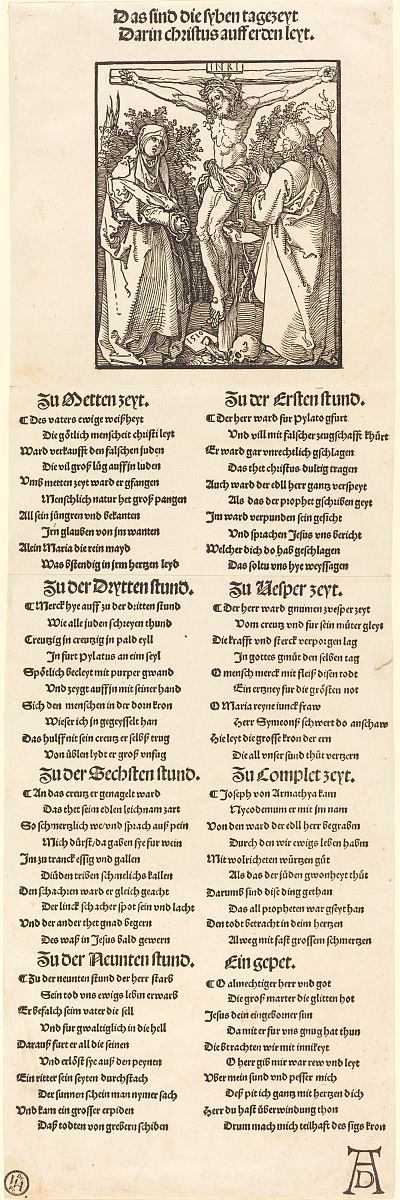 Das sind die syben tagezeyt
Darin christus auff erden leyt.
INRI
1510
Zu Metten zeyt.
¶ Des vaters ewige weißheyt
Die götlich menscheit christi leyt
Ward verkaufft den falschen juden
Die vil groß lüg auff jn luden
Vmb metten zeyt ward er gfangen
Menschlich natur het groß pangen
All sein jüngren vnd bekanten
Jrn glauben von jm wanten
Alein Maria die rein mayd
Was bstendig in jrm hertzen leyd
Zu der Drytten stund.
¶ Merck hye auff zu der dritten stund
Wie alle juden schreyen thund
Creutzig in creutzig in pald eyl
Jn fürt Pylatus an eim seyl
Spötlich becleyt mit purper gwand
Vnd zeygt auff jn mit seiner hand
Sich den menschen in der dorn kron
Wie ser ich jn gegeysselt han
Das hulff nit sein creutz er selbß trug
Von üblen lydt er groß vnfug
Zu der Sechsten stund.
¶ An das creutz er genagelt ward
Das thet seim edlen leichnam zart
So schmertzlich we vnd sprach auß pein
Mich dürst da gaben sye für wein
Jm zu tranck essig vnd gallen
Die üden triben schmelichs kallen
Den schachern ward er gleich geacht
Der linck schacher spot sein vnd lacht
Vnd der ander thet gnad begern
Des waß in Jesus bald gewern
Zu der Neunten stund.
¶ Zu der neunten stund der herr starb
Sein tod vns ewigs leben erwarb
Er befalch seim vater die sell
Vnd fur gwaltiglich in die hell
Darauß fürt er all die seinen
Vnd erlöst sye auß den peynen
Ein ritter sein seyten durchstach
Der sunnen schein man nymer sach
Vnd kam ein grosser erpiden
Daß todten von grebern schiden
Zu der Ersten stund.
¶ Der herr ward fur Pylato gfurt
Vnd vill mit falscher zeugschafft khürt
Er ward gar vnrechlich gschlagen
Das thet christus dultig tragen
Auch ward der edl herr gantz verspeyt
Als das der prophet gschriben geyt
Jm ward verpunden sein gesicht
Vnd sprachen Jesus vns bericht
Welcher dich do hab geschlagen
Das soltu vns hye weyssagen
Zu Vesper zeyt.
¶ Der herr ward gnumen zvesper zeyt
Vom creutz vnd für sein müter gleyt
Die krafft vnd sterck verporgen lag
Jn gottes gmüt den selben tag
O mensch merck mit fleiß disen todt
Ein ertzney für die grösten not
O Maria reyne iunckfraw
Herr Symeonß schwert do anschaw
Hie leyt die grosse kron der ern
Die all vnser sund thüt vertzern
Zu Complet zeyt.
¶ Joseph von Armathya kam
Nycodemum er mit jm nam
Von den ward der edll herr begrabm
Durch den wir ewigs leben habm
Mit wolricheten würtzen güt
Als das der jüden gwonheyt thüt
Darumb sind dise ding gethan
Das all propheten war gseyt han
Den todt betracht in deim hertzen
Alweg mit fast grossen schmertzen
Ein gepet.
¶ O almechtiger herr vnd got
Die groß marter die glitten hot
Jesus dein eingeborner sun
Da mit er für vns gnug hat thun
Die btrachten wir mit innikeyt
O herr gib mir war rew vnd leyt
Vber mein sund vnd pesser mich
Deß pit ich gantz mit hertzen dich
Herr du hast überwindung thon
Drum mach mich teilhaft des sigs kron
AD